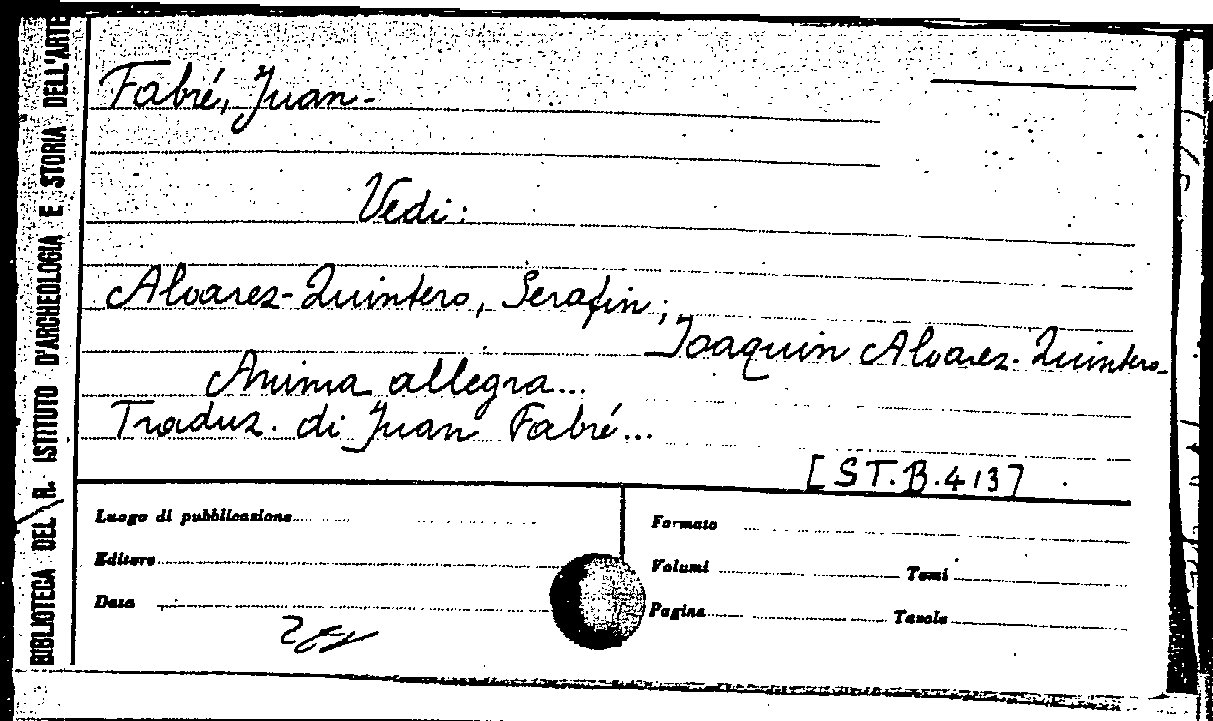 BIBLIOTECA DEL R. ISTITUTO D'ARCHEOLOGIA E STORIA DELL'ARTE
Fabré, Juan-
Vedi:
Alvarez-Quintero, Serafin;
Joaquin Alvarez-Quintero-
Anima allegra...
Traduz. di Juan Fabré...
[ST.B.413]
Luogo di pubblicazione
Formato
Editore
Volumi Tomi
Data
Pagine Tavole